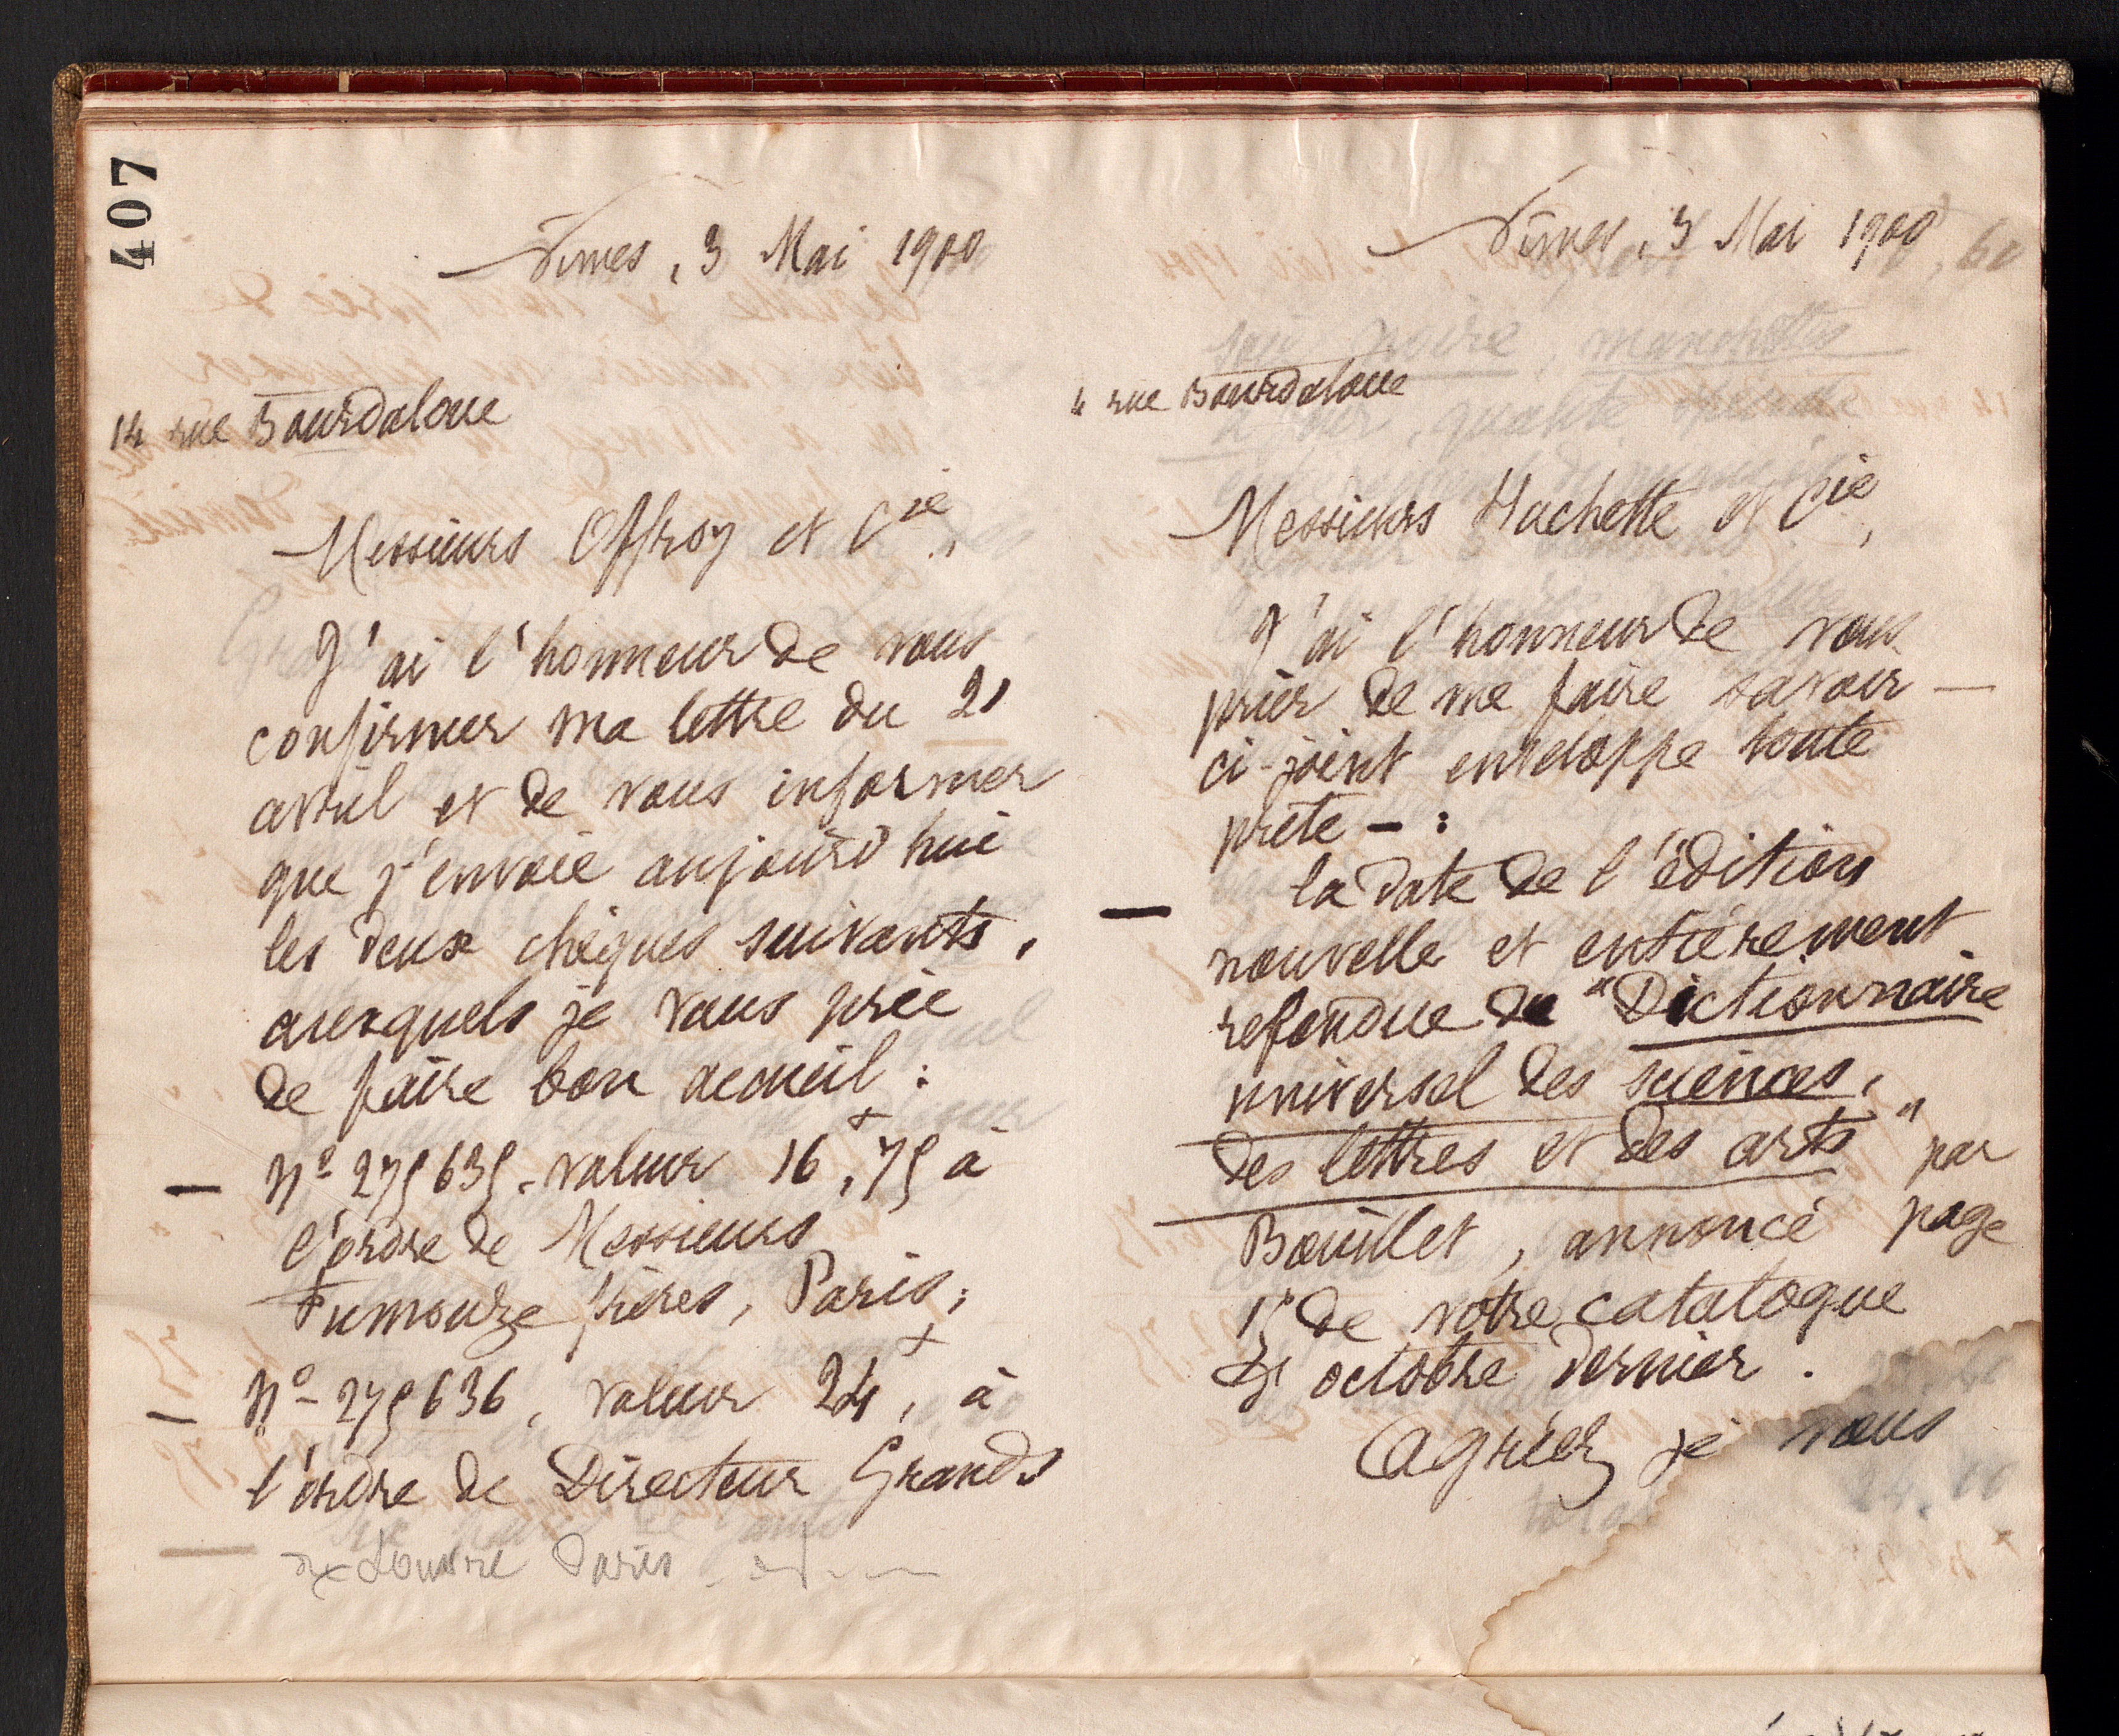 407
Nîmes, 3 Mai 1900
14 rue Bourdaloue
Messieurs Offroy et Cie,
J'ai l'honneur de vous
confirmer ma lettre du 21
avril et de vous informer
que j'envoie aujourd'hui
les deux chèques suivants,
auxquels je vous prie
de faire bon accueil :
— No 275635, valeur 16,75 à
l'ordre de Messieurs
Fumouze frères, Paris;
— No 275636, valeur 24, à
l'ordre de Directeur Grands
Louvre Paris
Nîmes, 3 Mai 1900
4 rue Bourdaloue
Messieurs Hachette et Cie,
J'ai l'honneur de vous
prier de me faire savoir —
ci-joint enveloppe toute
prête — :
— la date de l'édition
nouvelle et entièrement
refondue du "Dictionnaire
universel des sciences,
des lettres et des arts" par
Bouillet, annoncé page
15 de votre catalogue
octobre dernier.
Agréez je vous